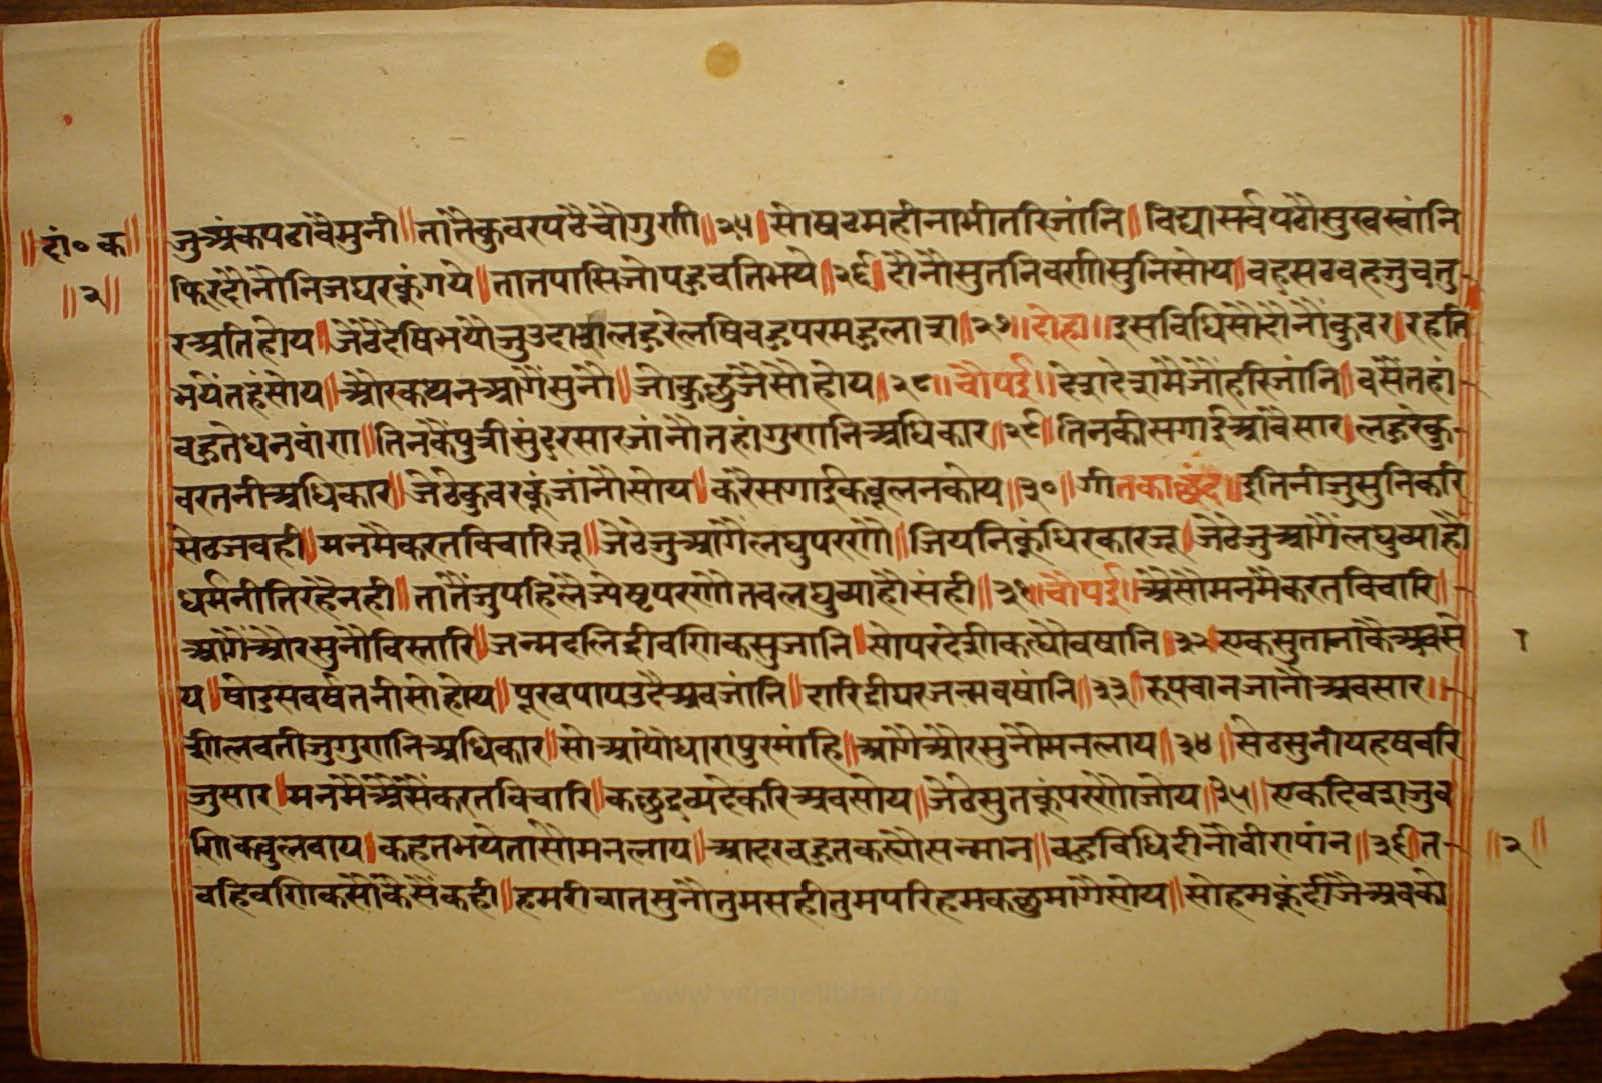 ॥दां०क॥
॥२॥
जुअंकपढावैमुनी॥तातैकुवरपढेचौगुणी॥२५॥सोषढमहीनाभीतरिजांनि॥विद्यासर्वपढौसुखखांनि
फिरदोनौनिजघरकुंगये॥तातपासिजोपहुचतिभये॥२६॥दोनौसुतनिवणीसुनिसोय॥वहसठवहजुचतु-
रअतिहोय॥जेठेदेषिभयौजुउदास॥लहुरेलषिवहुपरमहुलास॥२७॥दोहा॥इसविधिसौदोनौकुवर॥रहति
भयेंतहंसोय॥औरकथनआगैंसुनौ॥जोकुछुजैसौहोय॥२८॥चौपई॥देशदेशमैजौहरिजांनि॥वसैंतहां
वहुतेधनवांण॥तिनकैंपुत्रीसुंदरसारजांनौतहांगुणनिअधिकार॥२९॥तिनकीसगाईआवैसार॥लहुरेकु-
वरतनीअधिकार॥जेठेकुवरकूंजांनौसोय॥करैसगाईकबूलनकोय॥३०॥गीतकाछंद॥इतिनीजुसुनिकरि
सेठजवही॥मनमैकरतविचारिजू॥जेठेजुआगैलघुपरणौ॥जियनिकुंधिरकारजू॥जेठेजुआगैंलघुव्याहौ
धर्मनीतिरहैनही॥तातैंजुपहिलैज्येष्टपरणौतवलघुव्याहौसंही॥३१॥चौपई॥अैसौमनमैकरतविचारि॥
आगैंऔरसुनौविस्तारि॥जन्मदलिद्रीवणिकसुजानि॥सोपरदेशीकत्थौवषानि॥३२॥एकसुतानाकैअवसे
य॥षोडसवर्षतनीसोहोय॥पूरवपापउदैअवजांनि॥दारिद्रीघरजन्मवषांनि॥३३॥रूपवानजानौअवसार॥
शीलवतीजुगुणनिअधिकार॥सोआयौधारापुरमांहि॥आगैऔरसुनौमनलाय॥३४॥सेठसुनीयहषवरि
जुसार॥मनमैंअैसेंकरतविचारि॥कछुद्रव्यदेकरिअवसोय॥जेठेसुतकूंपरणौजोय॥३५॥एकदिवशजुव
णिकवुलवाय॥कहतभयेतासौमनलाय॥आदरवहुतकस्यौसन्मान॥वहुविधिदीनौवीरापांन॥३६॥त-
॥२॥
वहिवणिकसौंकैसेंकही॥हमरीवातसुनौतुमसहीतुमपरिहमकछुमागैसोय॥सोहमकूंदीजैअवको
www.vitragelibrary.org